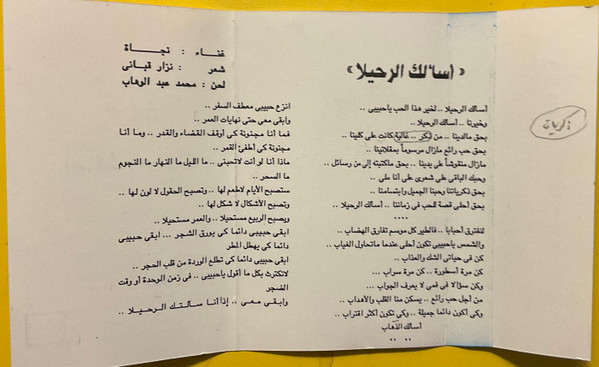 « أسألك الرحيلا »
غناء : نجاة
شعر : نزار قبانى
لحن : محمد عبد الوهاب
أسألك الرحيلا .. لخير هذا الحب ياحبيبى ..
وخيرنا .. أسألك الرحيلا ..
بحق مالدينا .. من ذكر .. غالية كانت على كلينا ..
بحق حب رائع مازال مرسوماً بمقلتينا ..
مازال منقوشاً على يدينا .. بحق ماكتبته إلى من رسائل ..
وحبك الباقى على شعرى على أنا ملى ..
بحق ذكرياتنا وحبنا الجميل وابتسامنا ..
بحق أحلى قصة للحب فى زماننا .. أسألك الرحيلا ..
....
لنفترق أحبابا .. فالطير كل موسم تفارق الهضاب ..
والشمس ياحبيبى تكون أحلى عندما ماتحاول الغياب ..
كن فى حياتى الشك والعذاب ..
كن مرة أسطورة .. كن مرة سراب ...
وكن سؤالا فى فمى لا يعرف الجواب ...
من أجل حب رائع .. يسكن منا القلب والأهداب ..
وكى أكون دائما جميلة .. وكى تكون أكثر اقتراب ..
أسألك الذهاب
.. ..
انزع حبيبى معطف السفر ..
وابقى معى حتى نهايات العمر ..
فما أنا مجنونة كى أوقف القضاء والقدر .. وما أنا
مجنونة كى أطفئ القمر ..
ماذا أنا لو أنت لاتحبنى .. ما الليل ما النهار ما النجوم
ما السحر ..
ستصبح الأيام لاطعم لها .. وتصبح الحقول لا لون لها ..
وتصبح الأشكال لا شكل لها ..
ويصبح الربيع مستحيلا .. والعمر مستحيلا ..
ابقى حبيبى دائما كى يورق الشجر ... ابقى حبيبى
دائما كى يهطل المطر
ابقى حبيبى دائما كى تطلع الوردة من قلب الحجر ..
لاتكترث بكل ما أقول ياحبيبى .. فى زمن الوحدة أو وقت
الضجر
وابقى معى .. إذا أنا سألتك الرحيلا ..
ذكريات